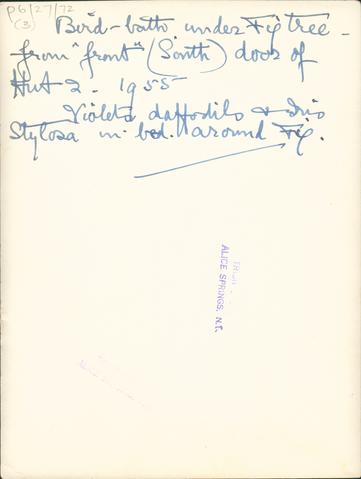 P6/27/72
(3)
Bird-bath under Fig tree -
from "front" (South) door of
Hut 2. 1955
Violets daffodils & Iris
Stylosa in bed. around Fig.
ALICE SPRINGS, N.T.